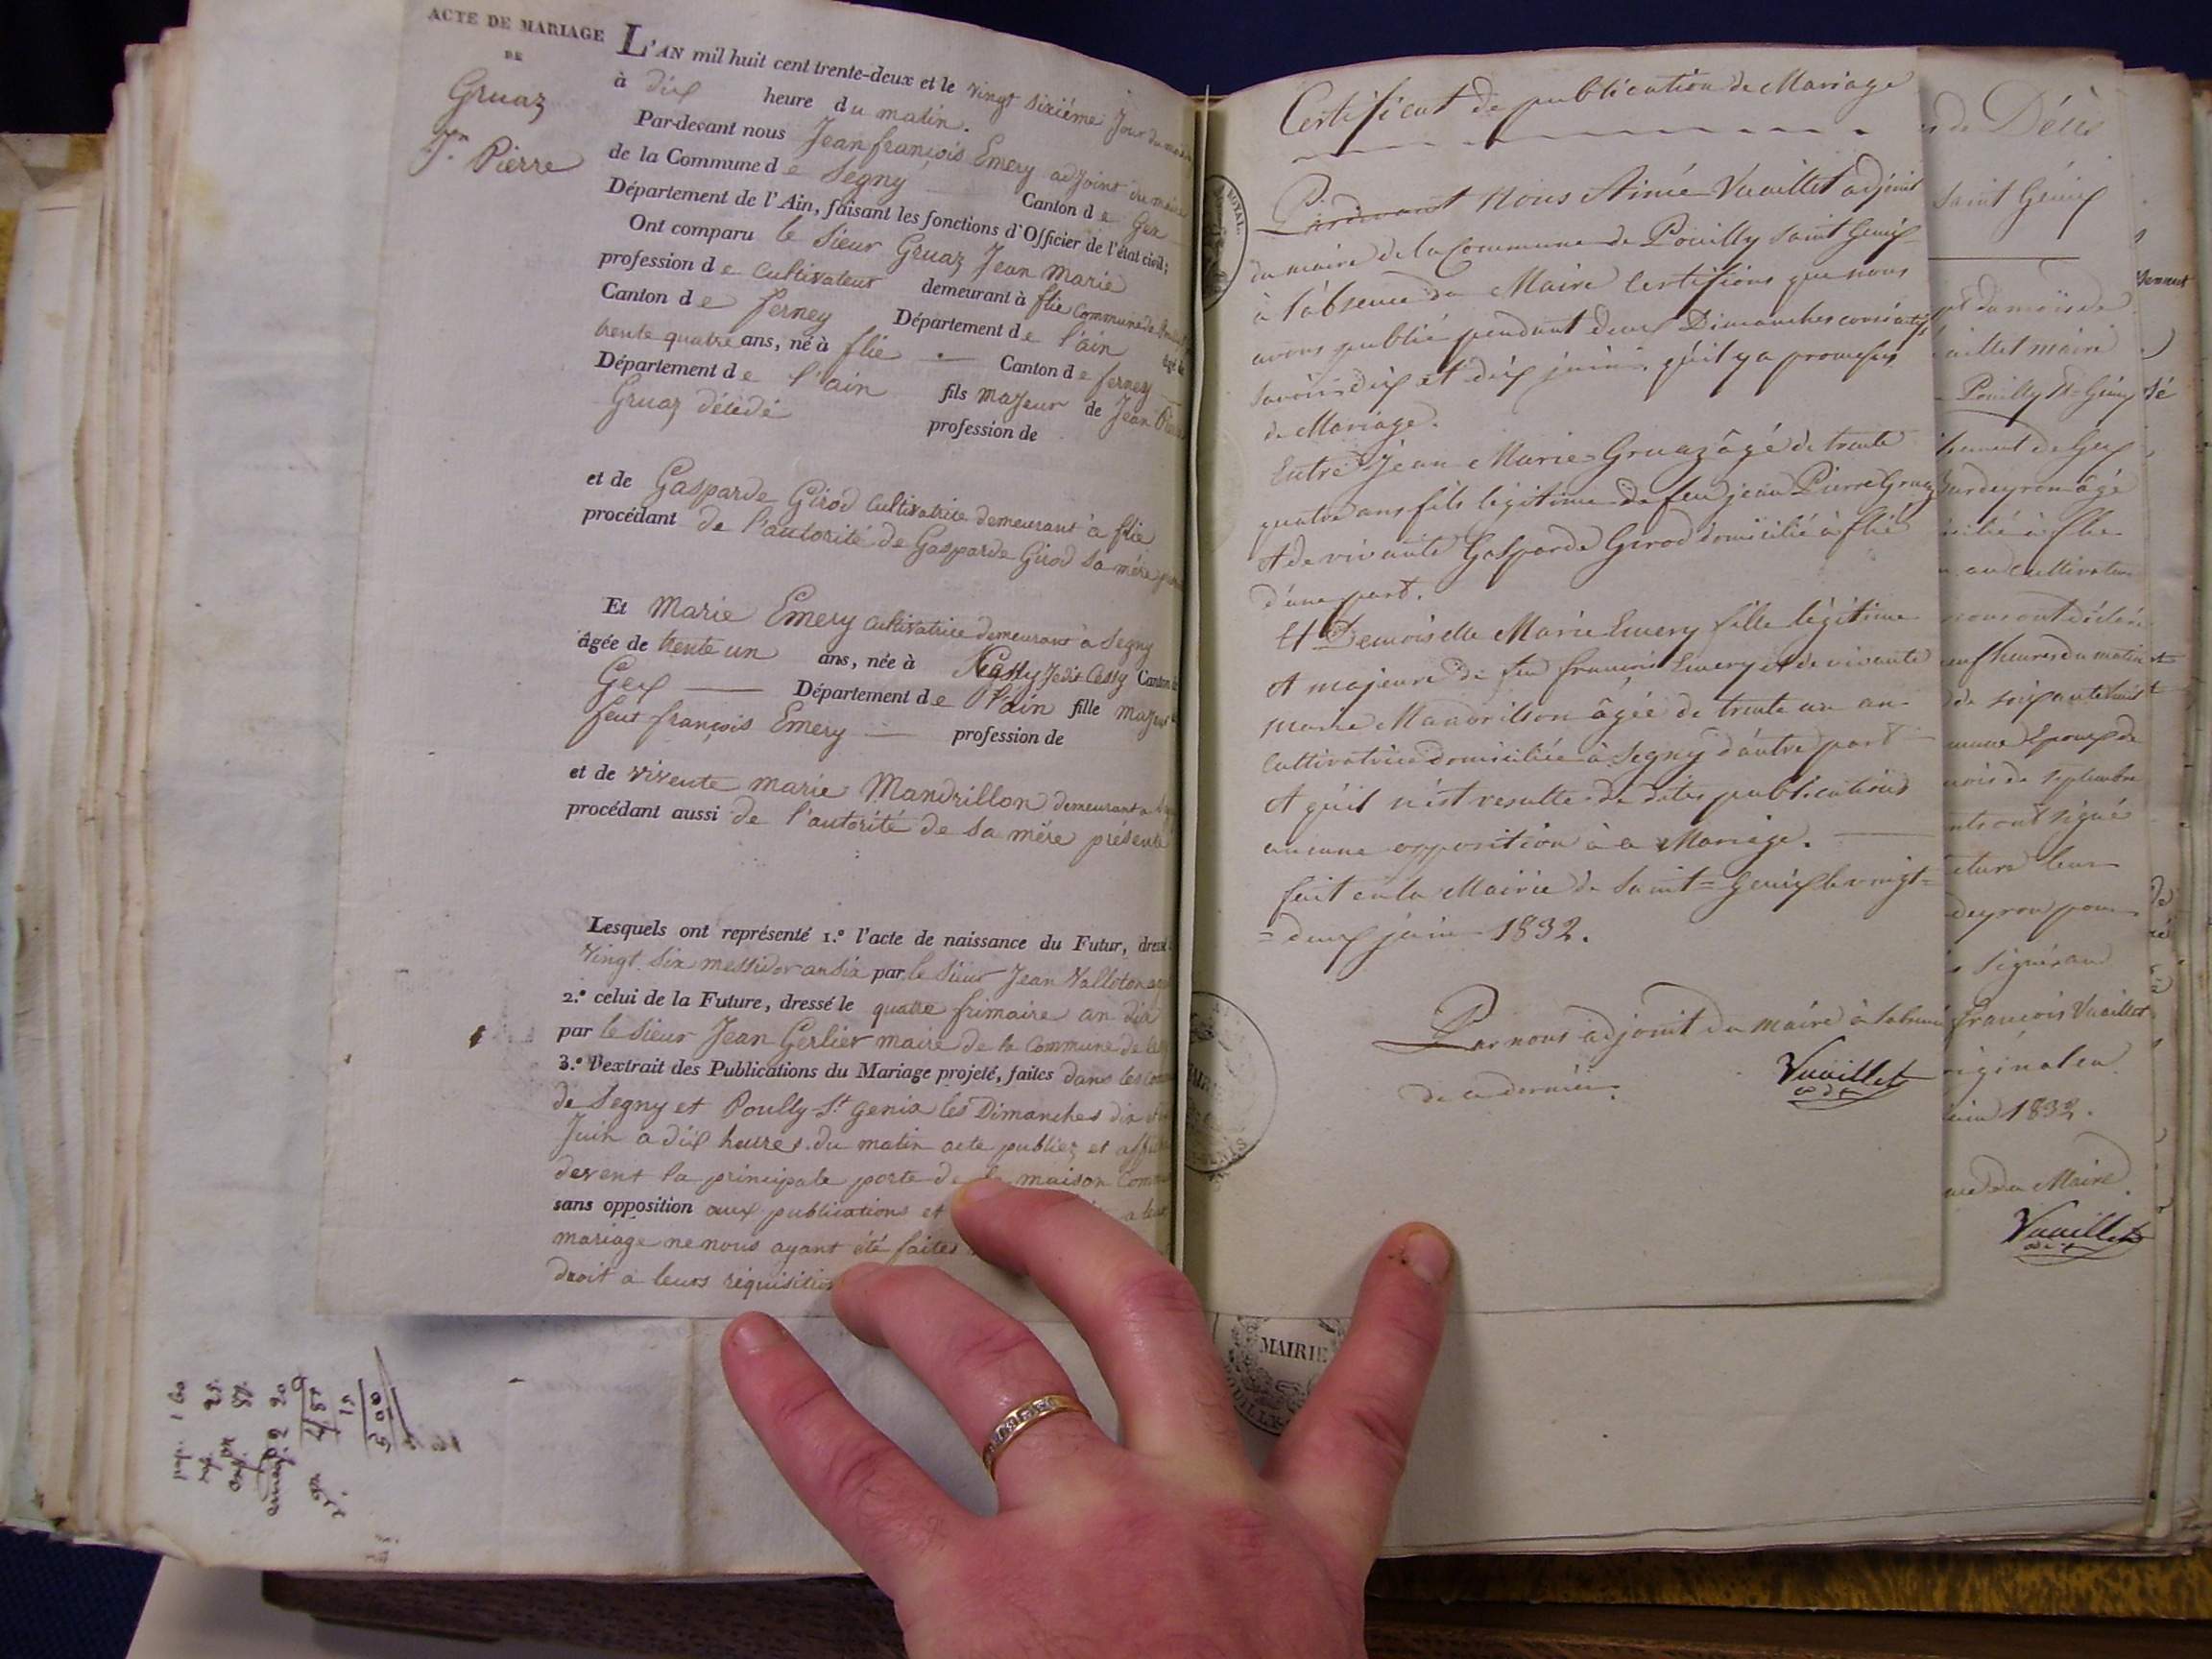 ACTE DE MARIAGE
DE
Gruaz
Jn Pierre
L'AN mil huit cent trente-deux et le vingt sixiéme Jour du mois
à dix heure du matin.
Par-devant nous Jean françois Emery adjoint du maire
de la Commune de Segny Canton de Gex
Département de l'Ain, faisant les fonctions d'Officier de l'état civil;
Ont comparu le Sieur Gruaz Jean Marie
profession de cultivateur demeurant à flie Commune de
Canton de ferney Département de l'ain âgé de
trente quatre ans, né à flie Canton de ferney
Département de l'ain fils majeur de Jean Pierre
Gruaz décédé profession de
et de Gasparde Girod cultivatrice demeurant à flie
procédant de l'autorité de Gasparde Girod sa mére
Et Marie Emery cultivatrice demeurant à Segny
âgée de trente un ans, née à Cessy Canton de
Gex Département de l'ain fille majeure
feut françois Emery profession de
et de vivente marie Mandrillon demeurant a
procédant aussi de l'autorité de sa mére présente
Lesquels ont représenté 1.º l'acte de naissance du Futur, dressé
vingt six messidor an six par le sieur Jean Valloton
2.º celui de la Future, dressé le quatre frimaire an dix
par le sieur Jean Gerlier maire de la Commune de
3.º l'extrait des Publications du Mariage projeté, faites dans les
de Segny et Pouilly St genix les Dimanches dix et
Juin a dix heures du matin acte publiez et
devent la principale porte de la maison
sans opposition aux publications et a leur
mariage ne nous ayant été faites
droit a leurs réquisition
Certificat de publication de Mariage
Pardevant Nous Aimé Vuaillet adjoint
du maire de la Commune de Pouilly Saint Genix
à l'absence du Maire Certifions que nous
avons publié pendant deux Dimanches consécutifs
Savoir dix et dix juin, qu'il y a promesses
de Mariage.
Entre Jean Marie Gruaz âgé de trente
quatre ans fils légitime de feu jean Pierre Gruaz
et de vivante Gasparde Gerod domicilié à flié
d'une part.
Et Demoiselle Marie Emery fille légitime
et majeure de feu françois Emery et de vivante
marie Mandrilson âgée de trente un an
cultivatrice domiciliée à Segny d'autre part
et qu'il n'est resulté de dites publications
aucune opposition à ce Mariage.
fait en la Mairie de Saint=Genix le vingt=
=deux juin 1832.
Par nous adjoint du maire à l'absence
de ce dernier.
Vuaillet
adjt
de Décès
Saint Genix
du mois de
Vuaillet maire
Pouilly St Genix
de Gex
âgé
à flie
cultivateur
nous ont déclaré
neuf heures du matin
de soixante huit
Epoux de
mois de septembre
ont signé
lecture leur
pour
françois Vuaillet
original en
juin 1832.
du Maire
Vuaillet
adjt
ROYAL
MAIRIE
POUILLY
1 60
25.
2 20
4 85
15
5 00